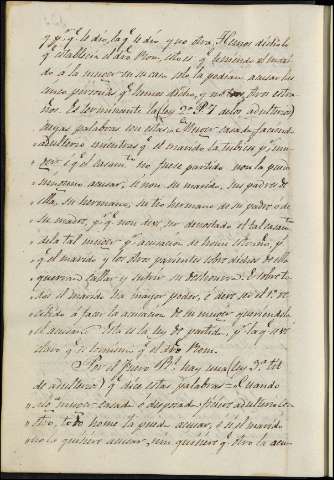 y pr. qe. le dio, la qe. le dio y no otra. Hemos dicho lo
qe. establecia el dro. Rom., esto es qe. teniendo el mari-
do a la muger en su casa solo la podian acusar las
cinco personas qe. hemos dicho, y no otros estra-
ños. Es terminante la (ley 2ª P. 7 de los adulterios)
cuyas palabras son estas. Muger casada faciendo
adulterio mientras qe. el marido la tubiese pr. mu-
ger é qe. el casamto. no fuese partido non la puede
ninguno acusar, si non su marido, ó su padre de
ella, su hermano, su tio hermano de su padre ó de
su madre, pr. qe. non deve ser denostado el tal casamto.
de la tal muger pr. acusacion de home estraño, pr.
qe. el marido y los otros parientes sobre dichos de ella
querian callar y sufrir su deshonra. E sobre to-
dos el marido ha mayor poder, é deve ser el 1º re-
cibido á facer la acusacion de su muger queriendola
él acusar. Esta es la ley de partida, pr. la qe. se ve
claro qe. es lo mismo qe. el dro. Rom.
Por el Fuero Rl. hay una (ley 3ª tit.
de adulterios) qe. dice estas palabras = Cuando
la muger casada ó desposada ficiere adulterio con
otro, todo home la pueda acusar, é si el marido
no la quisiere acusar, nin quisiere qe. otro la acu-